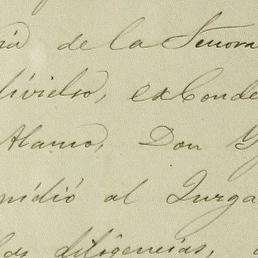 ria de la Señora
divielso, ex Conde
Alamo, Don
midió al Juzga
las diligencias,